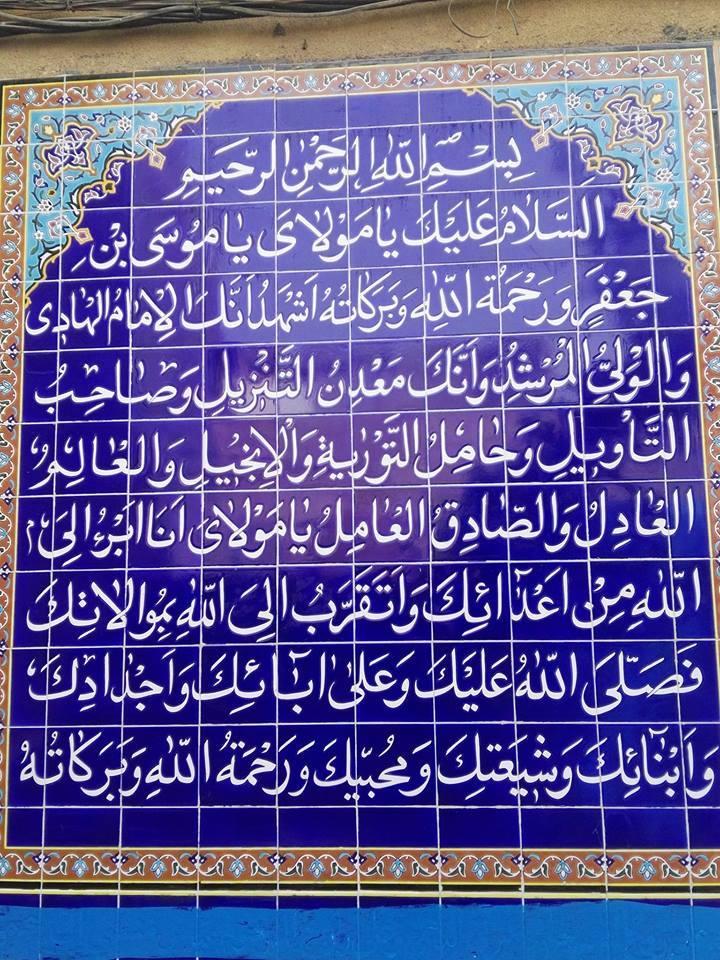 بِسْمِ اللهِ الرَّحْمٰنِ الرَّحِيمِ
السَّلَامُ عَلَيْكَ يَا مَوْلَايَ يَا مُوسَى بْنِ
جَعْفَرٍ وَرَحْمَةُ اللهِ وَبَرَكَاتُهُ اَشْهَدُ اَنَّكَ الْاِمَامُ الْهَادِى
وَالْوَلِىُّ الْمُرْشِدُ وَاَنَّكَ مَعْدِنُ التَّنْزِيلِ وَصَاحِبُ
التَّأْوِيلِ وَحَامِلُ التَّوْرٰيةِ وَالْاِنْجِيلِ وَالْعَالِمُ
الْعَادِلُ وَالصَّادِقُ الْعَامِلُ يَا مَوْلَاىَ اَنَا اَبْرَءُ اِلَى
اللهِ مِنْ اَعْدَائِكَ وَاَتَقَرَّبُ اِلَى اللهِ بِمُوَالَاتِكَ
فَصَلَّى اللهُ عَلَيْكَ وَعَلَى اٰبَائِكَ وَاَجْدَادِكَ
وَاَبْنَائِكَ وَشِيعَتِكَ وَمُحِبِّيكَ وَرَحْمَةُ اللهِ وَبَرَكَاتُهُ